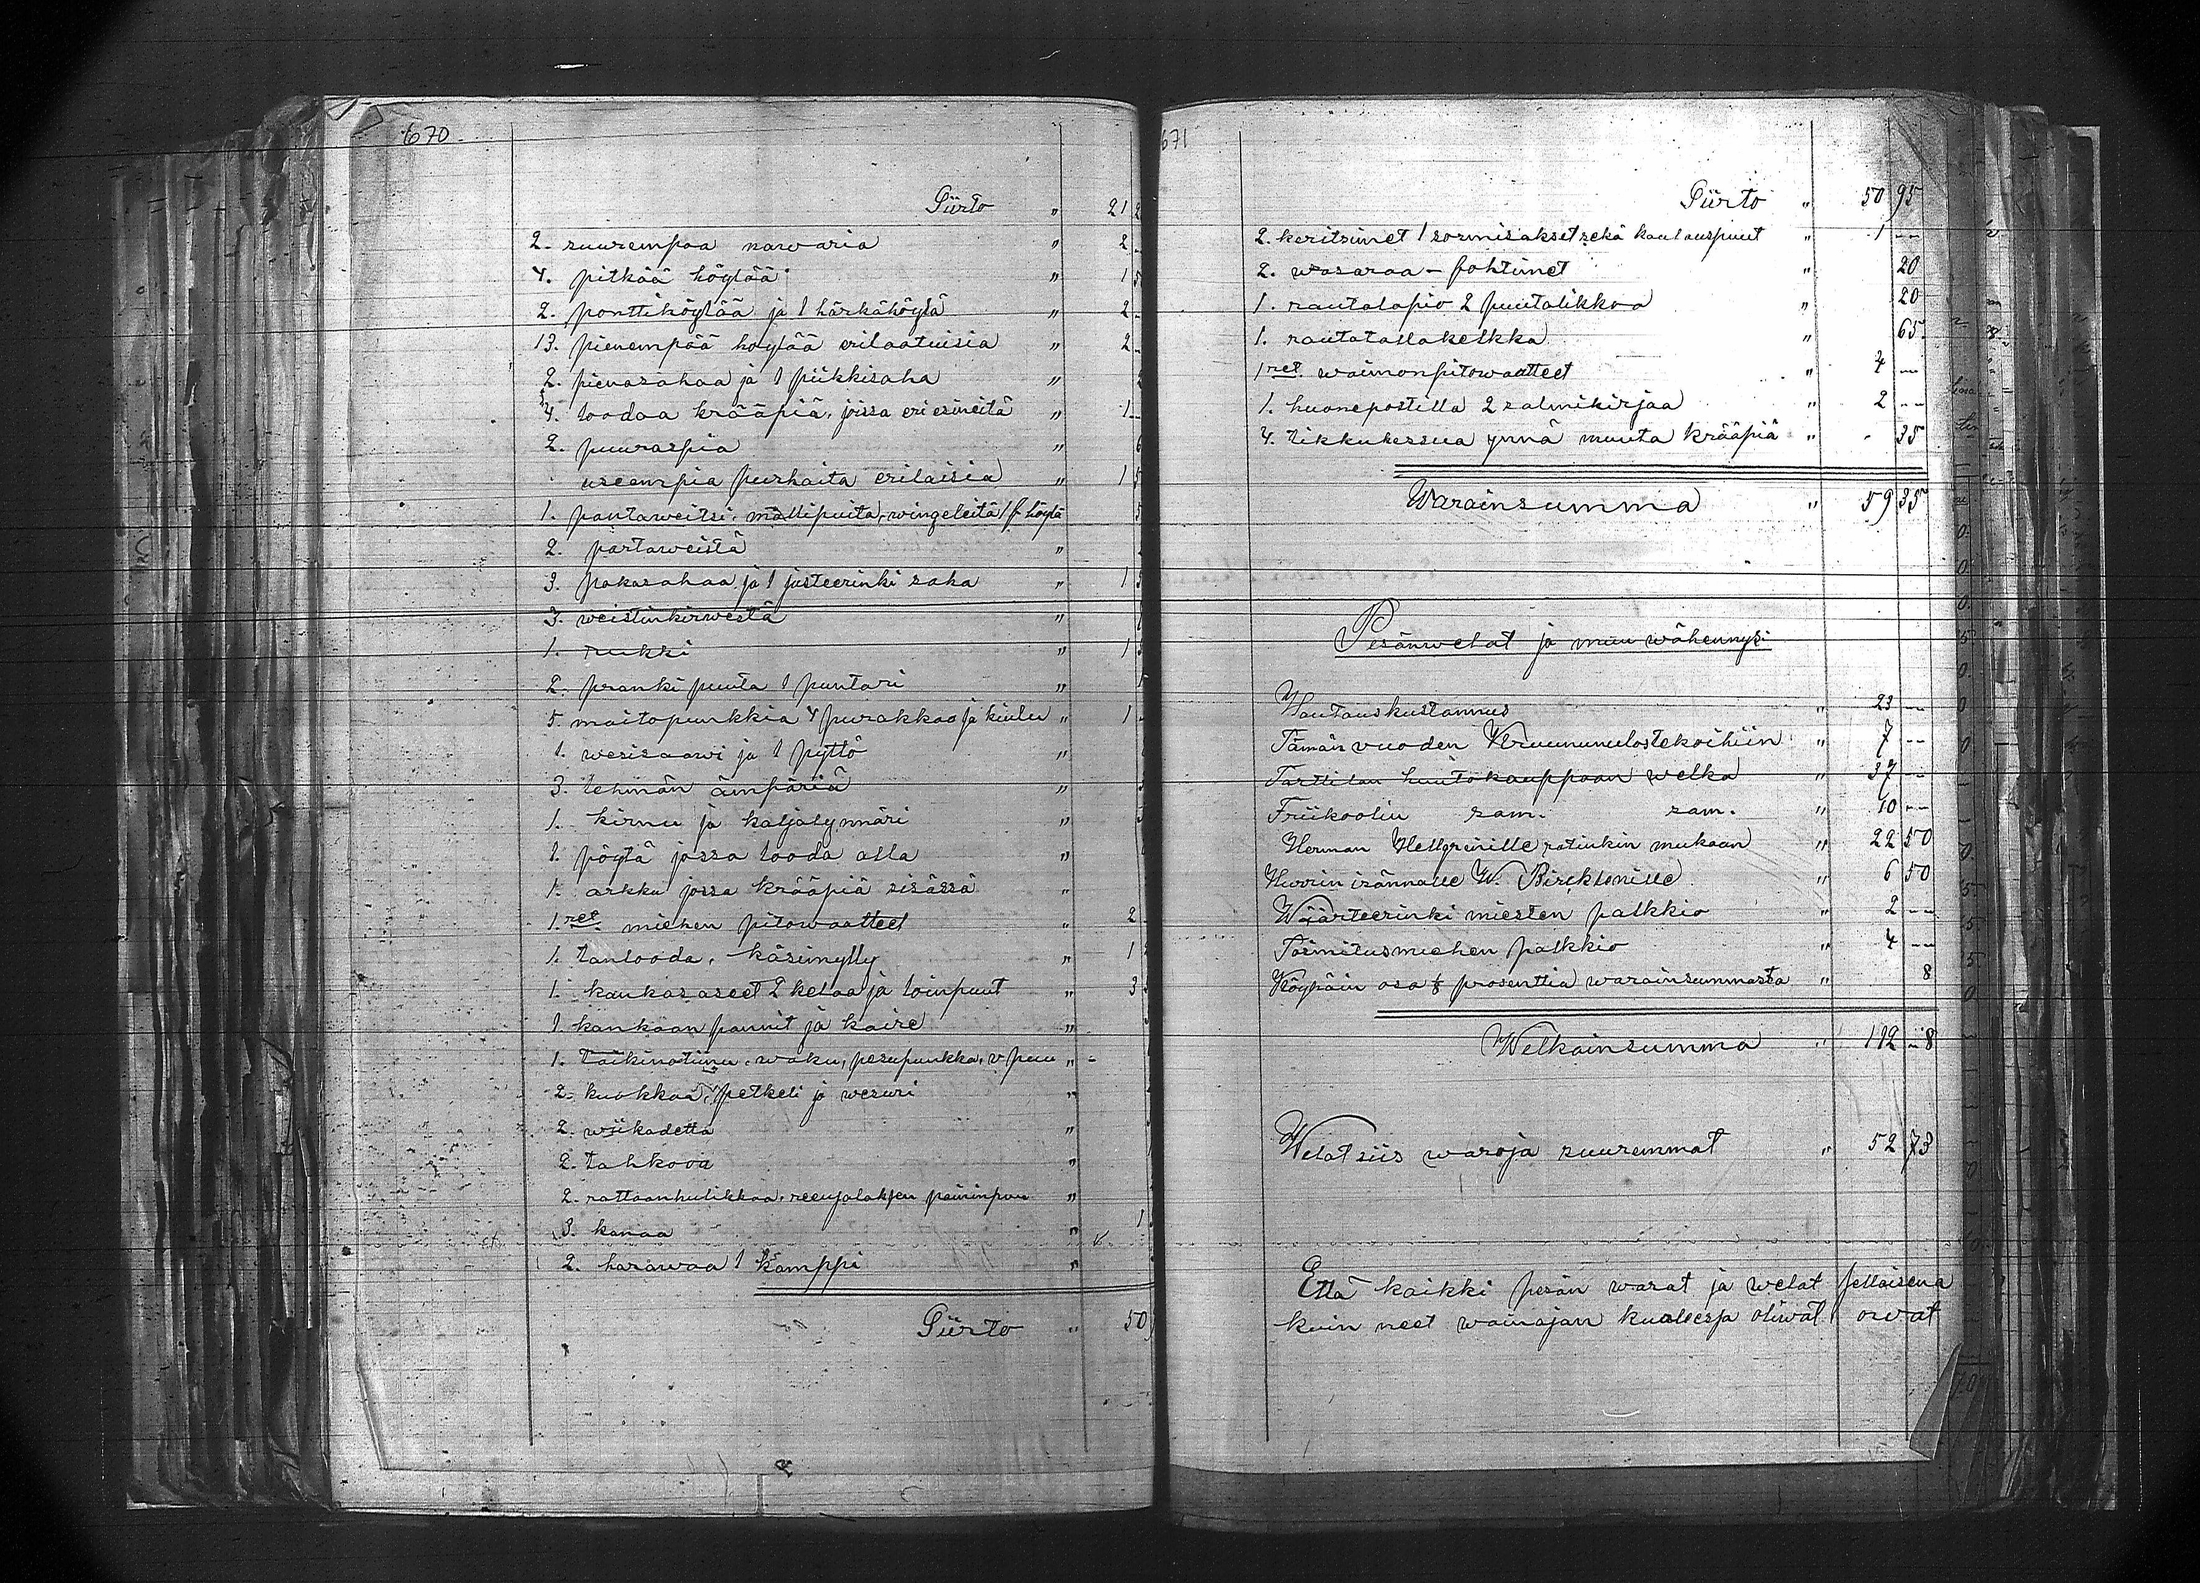 670
Siirto " 21 2
2. suurempaa nawaria " 2 -
4. pitkää höylää " 1 5
2. ponttihöylää ja 1 härkähöylä " 2 -
13. pienempää höylää erilaatuisia " 2 -
2. pienasahaa ja 1 piikkisaha "
4. loodaa krääpiä, joissa eri esineitä " 1 -
2. puuraspia " 6
useempia purhaita erilaisia " 1 5
1. pantaweitsi, mallipuita, wingeleitä 1 p höylä 5
2. pärtaweistä "
3. pokasahaa ja 1 justeerinki saha " 1
3. weistinkirwestä "
1. rukki " 1
2. pranki puuta 1 puntari "
5. maitopunkkia 4 purakkaa ja kiulu " 1 -
1. wesisaawi ja 1 pyttö "
3. lehmän ämpäriä "
1. kirnu ja kaljalynnäri "
1. pöytä jossa looda alla "
1. arkku jossa krääpiä sisässä "
1. ret. miehen pitowaatteet " 2
1. tanlooda, käsimylly " 1
1. kankas aseet 2 kelaa ja loinpuut " 3
1 kankaan pannit ja kaire "
1. Taikinatiinu, waku, pesupunkka, v puu " -
2. kuokkaa, petkeli ja wesuri "
2. wiikadetta "
2. tahkoa "
2. rattaanhulikkaa, reenjalaksen paininpuu "
3. kanaa " 1
2. harawaa 1 kamppi "
Siirto " 50
671
Siirto " 50 95
2. keritsimet 1 sormisakset sekä kaulauspuut " 1 --
2. wasaraa - hohtimet " 20
1. rautalapio 2 puutalikkoa " 20
1. rautatallakelkka " 65
1 ret waimonpitowaatteet " 4 --
1. huonepostilla 2 salmikirjaa " 2 --
4. tikkukessua ynnä muuta krääpiä " - 35
Warainsumma " 59 35
Pesänwelat ja muu wähennys:
Hautauskustannus " 23 --
Tämän vuoden Kruununulostekoihiin " 7 --
Tarttilan huutokauppaan welka " 37 --
Friikoolin sam. sam. " 10 --
Herman Hellgrenille ratinkin mukaan " 22 50
Huorin isännälle W. Bircklenille " 6 50
Wäärteerinki miesten palkkio " 2 --
Toimitusmiehen palkkio " 4 --
Köyhäin osa ⅛ prosenttia warainsummasta " 8
Welkainsumma " 112 - 8
Welat siis waroja suuremmat " 52 73
Että kaikki pesän warat ja welat sellaisena
kuin neet wainajan kuollessa oliwat owat